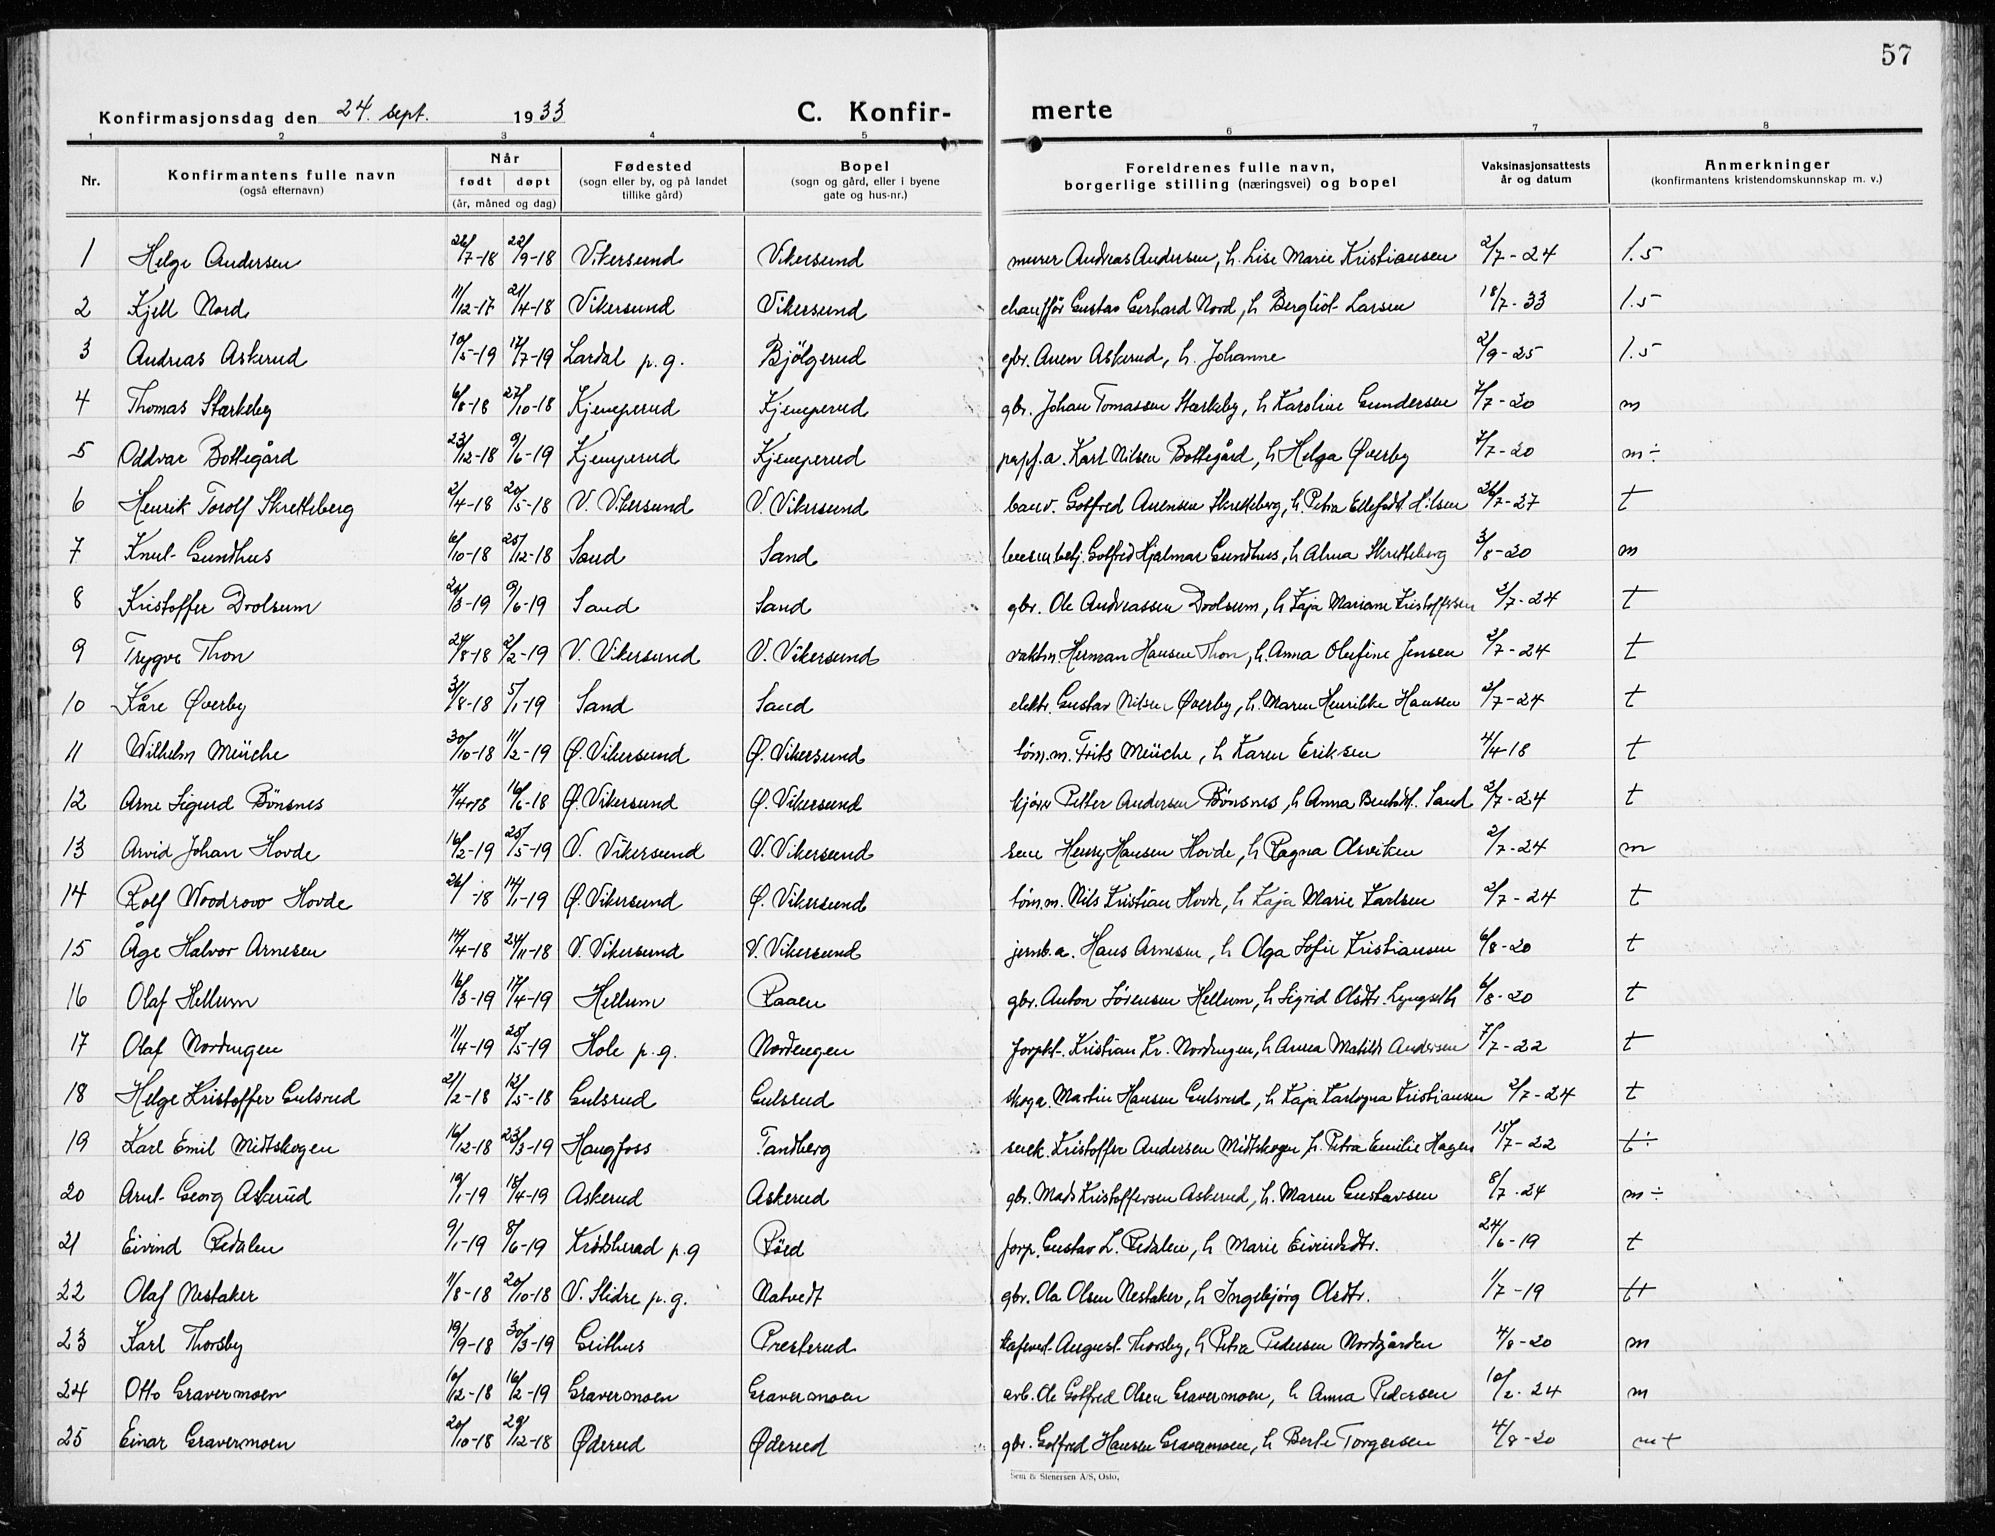 57
Konfirmasjonsdag den 24. sept. 1933 C. Konfir- merte
1 2 3 4 5 6 7 8
Nr. Konfirmantens fulle navn (også efternavn) Når født døpt (år, måned og dag) Fødested (sogn eller by, og på landet tillike gård) Bopel (sogn og gård, eller i byene gate og hus-nr.) Foreldrenes fulle navn, borgerlige stilling (næringsvei) og bopel Vaksinasjonsattests år og datum Anmerkninger (konfirmantens kristendomskunnskap m. v.)
1 Helge Andersen 26/7-18 22/9-18 Vikersund Vikersund murer Andreas Andersen, h. Lise Marie Kristiansen 2/7-24 1.5
2 Kjell Nord 11/12-17 21/4-18 Vikersund Vikersund chauffør Gustav Gerhard Nord, h Bergliot Larsen 18/7-33 1.5
3 Andreas Askerud 10/5-19 17/7-19 Lardal p.g. Bjölgerud gbr. Auen Askerud, h. Johanne 2/9-25 1.5
4 Thomas Stærkeby 6/8-18 27/10-18 Kjemperud Kjemperud gbr. Johan Tomassen Stærkeby, h Karoline Gundersen 7/7-20 m
5 Oddvar Bottegård 23/12-18 9/6-19 Kjemperud Kjemperud papf.a. Karl Nilsen Bottegård, h Helga Øverby 7/7-20 m÷
6 Henrik Torolf Skretteberg 2/4-18 20/5-18 V. Vikersund V. Vikersund banv. Gotfred Auensen Skretteberg, h. Petra Ellefsdt. Nilsen 26/7-27 t
7 Knut Gundhus 6/10-18 25/12-18 Sand Sand Gotfred Hjalmar Gundhus, h Alma Skretteberg 3/8-20 m
8 Kristoffer Drolsum 26/3-19 9/6-19 Sand Sand gbr. Ole Andreassen Drolsum, h Kaja Mariane Kristoffersen 2/7-24 t
9 Trygve Thon 24/8-18 2/2-19 V. Vikersund V. Vikersund vaktm. Herman Hansen Thon, h. Anna Olufine Jensen 2/7-24 t
10 Kåre Øverby 31/8-18 5/1-19 Sand Sand elektr. Gustav Nilsen Øverby, h. Maren Henrikke Hansen 2/7-24 t
11 Wilhelm Meüche 30/10-18 11/2-19 Ø. Vikersund Ø. Vikersund töm.m. Frits Meüche, h Karen Eriksen 4/4-18 t
12 Arne Sigurd Bönsnes 4/4-18 16/6-18 Ø. Vikersund Ø. Vikersund kjörer Petter Andersen Bönsnes, h Anna Berntsdt. Sand 2/7-24 t
13 Arvid Johan Hovde 16/2-19 25/5-19 V. Vikersund V. Vikersund Henry Hansen Hovde, h Ragna Asviken 2/7-24 m
14 Rolf Woodrow Hovde 26/ -18 14/1-19 Ø. Vikersund Ø. Vikersund töm.m. Nils Kristian Hovde, h Kaja Marie Karlsen 2/7-24 t
15 Åge Halvor Arnesen 14/4-18 24/11-18 V. Vikersund V. Vikersund jernb.a. Hans Arnesen, h Olga Sofie Kristiansen 6/8-20 t
16 Olaf Hellum 16/3-19 17/4-19 Hellum Raaen gbr. Anton Sörensen Hellum, h Sigrid Olsdtr. Lyngseth 6/8-20 t
17 Olaf Nordengen 11/4-19 25/5-19 Hole p.g. Nordengen forpkt. Kristian Kr. Nordengen, h Anna Matild Andersen 7/7-22 t
18 Helge Kristoffer Gulsrud 21/2-18 12/5-18 Gulsrud Gulsrud skoga. Martin Hansen Gulsrud, h Kaja Karlogna Kristiansen 2/7-24 t
19 Karl Emil Midtskogen 16/12-18 23/3-19 Haugfoss Tandberg snek. Kristoffer Andersen Midtskogen h. Petra Emilie Hagen 15/7-22 t÷
20 Arnt Georg Askerüd 19/1-19 18/4-19 Askerud Askerud gbr. Mads Kristoffersen Askerud, h. Maren Gustavsen 8/7-24 m÷
21 Eivind Redalen 9/1-19 8/6-19 Krödsherad p.g Röed forp. Gustav L. Redalen, h Marie Eivindsdtr. 24/6-19 t
22 Olaf Nestaker 11/8-18 20/10-18 V. Slidre p.g. Natvedt gbr. Ola Olsen Nestaker, h Ingebjörg Olsdtr. 1/7-19 t+
23 Karl Thorsby 19/9-18 30/3-19 Geithus Presterud kafevert August Thorsby, h Petra Pedersen Nordgården 4/8-20 m
24 Otto Gravermoen 10/12-18 16/2-19 Gravermoen Gravermoen arb. Ole Gotfred Olsen Gravermoen, h Anna Pedersen 10/2-24 m
25 Einar Gravermoen 20/10-18 29/12-18 Øderud Øderud gbr. Gotfred Hansen Gravermoen, h Berte Torgersen 4/8-20 m+
Sem & Stenersen A/S, Oslo.